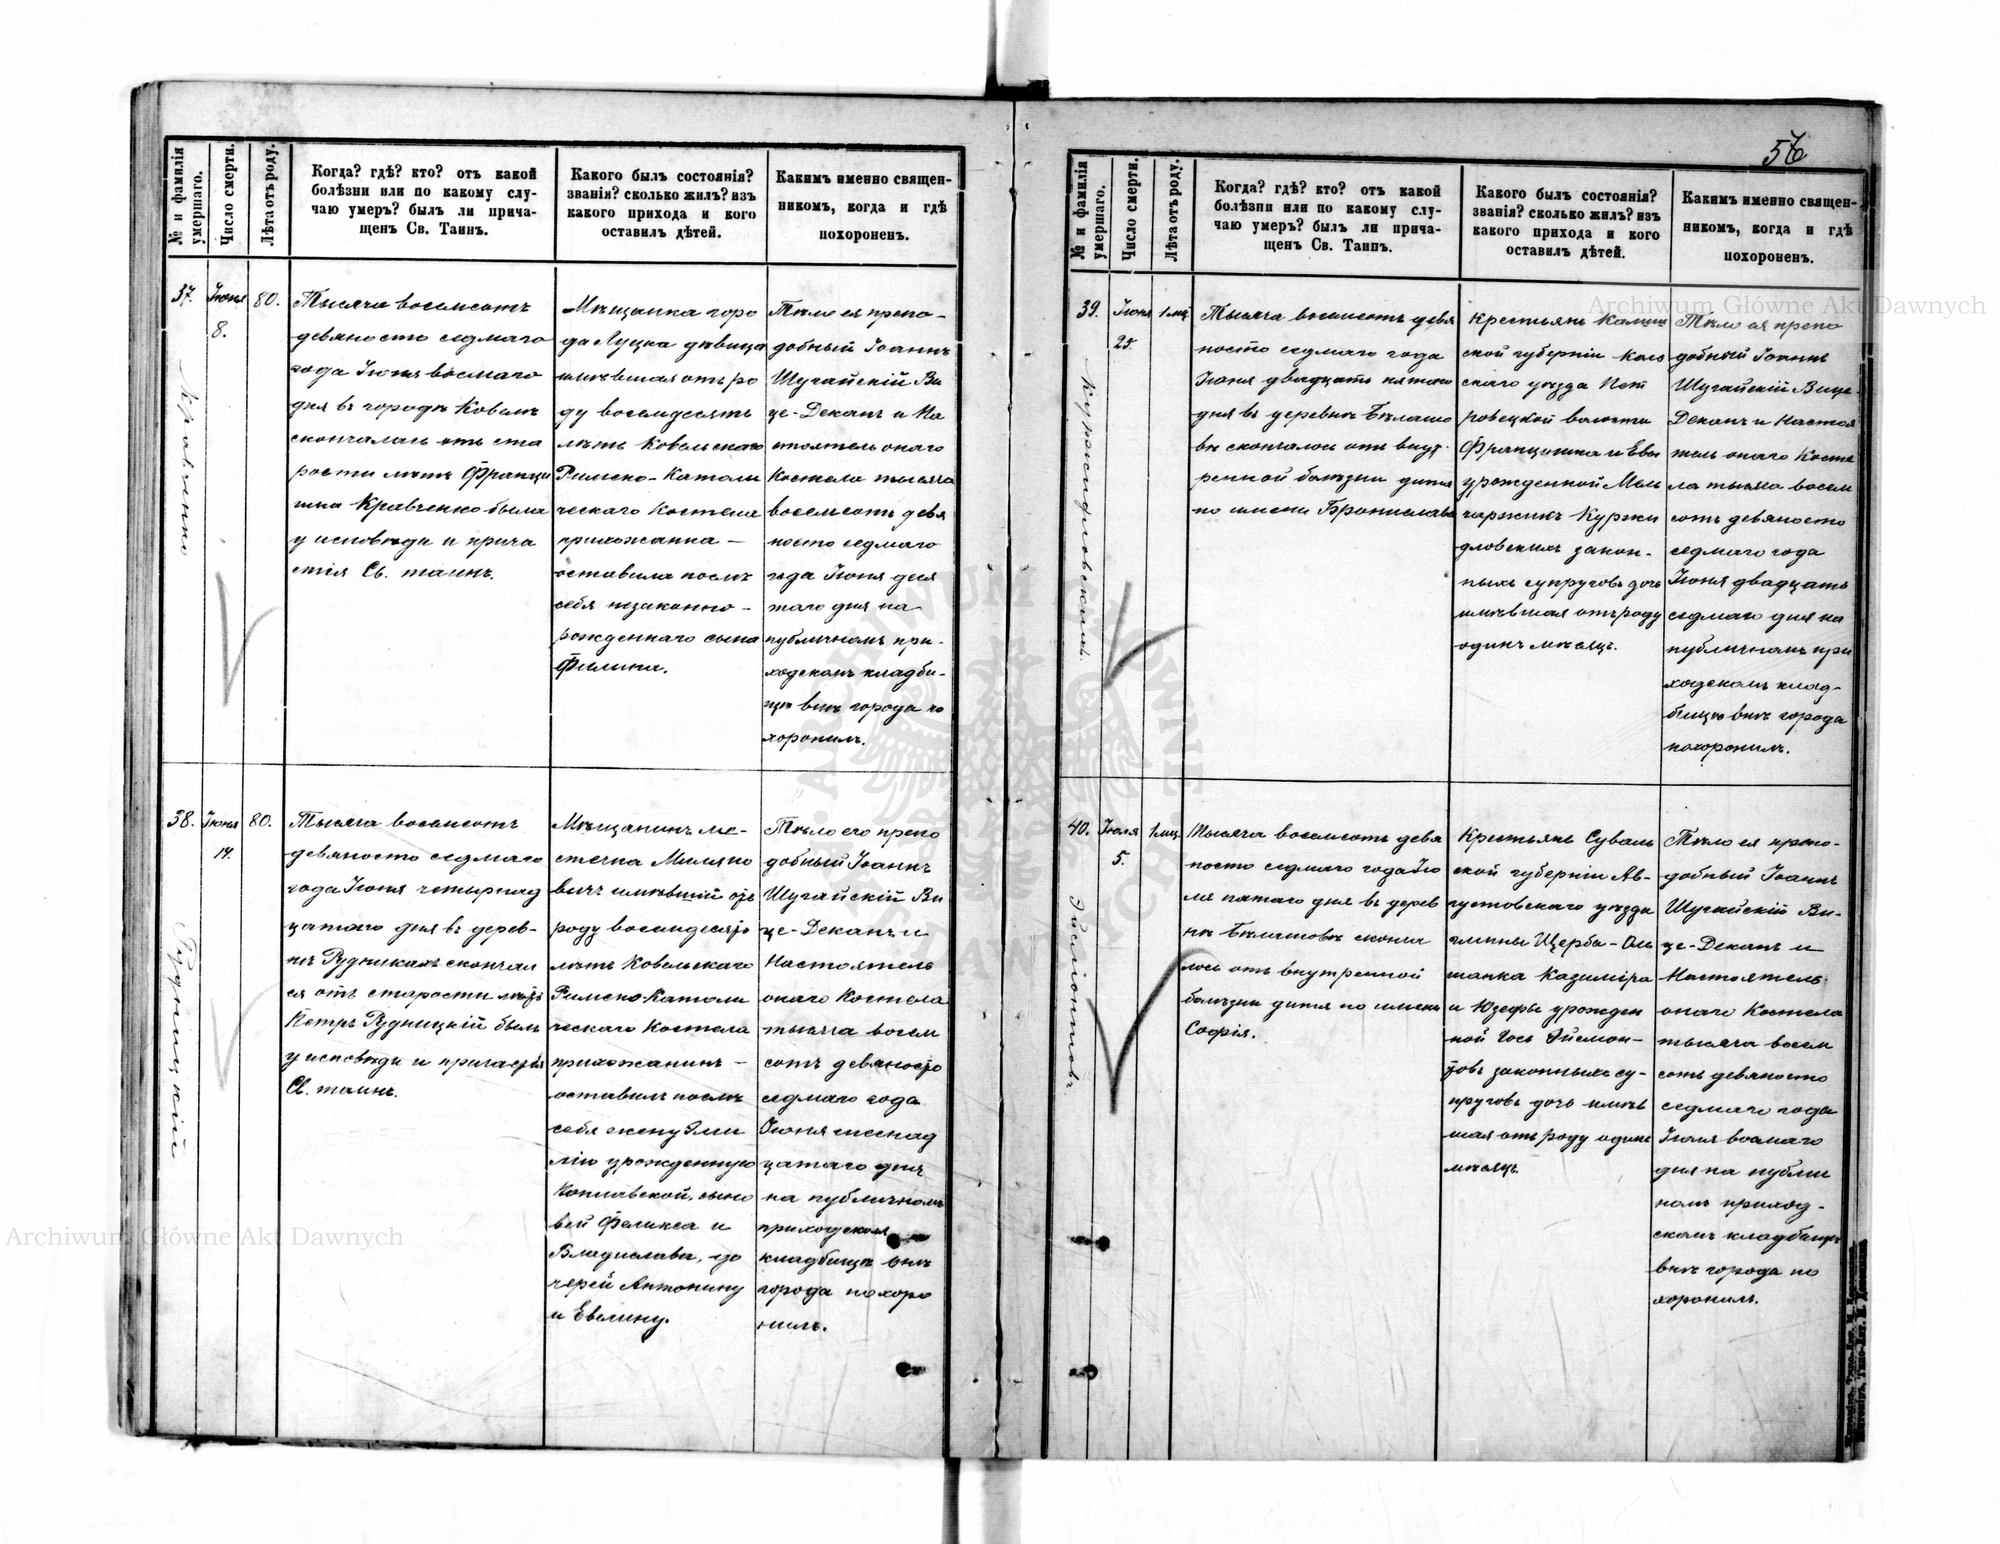 № и фамилія умершаго.
Число смерти.
Лѣта отъ роду.
Когда? гдѣ? кто? отъ какой
болѣзни или по какому слу-
чаю умеръ? былъ ли прича-
щенъ Св. Таинъ.
Какого былъ состоянія?
званія? сколько жилъ? изъ
какого прихода и кого
оставилъ дѣтей.
Какимъ именно священ-
никомъ, когда и гдѣ
похороненъ.
37.
Кравченко
Іюня
8.
80.
Тысяча восемсотъ
девяносто седмаго
года Іюня восмаго
дня въ городѣ Ковелѣ
скончалась отъ ста
рости лѣтъ Франци
шка Кравченко была
у исповѣди и прича
стія Св. таинъ.
Мѣщанка горо
да Луцка дѣвица
имѣвшая отъ ро
ду восемдесять
лѣтъ Ковельскаго
Римско-Католи
ческаго Костела
прихожанка —
оставила послѣ
себя незаконно-
рожденнаго сына
Филипа.
Тѣло ея препо-
добный Іоаннъ
Шугайскій Ви
це-Деканъ и На
стоятель онаго
Костела тысяча
восемсотъ девя
носто седмаго
года Іюня деся
таго дня на
публичномъ при-
ходскомъ кладби-
щѣ внѣ города по
хоронилъ.
38.
Рудницкій
Іюня
14.
80.
Тысяча восемсотъ
девяносто седмаго
года Іюня четырнад
цатаго дня въ дерев-
нѣ Рудникахъ скончал
ся отъ старости лѣтъ
Петръ Рудницкій былъ
у исповѣди и причастія
Св. таинъ.
Мѣщанинъ ме-
стечка Миляно
вичъ имѣвшій отъ
роду восемдесятъ
лѣтъ Ковельскаго
Римско-Католи
ческаго Костела
прихожанинъ —
оставилъ послѣ
себя жену Эми
лію урожденную
сыно
вей Феликса и
Владислава, до
черей Антонину
и Евелину.
Тѣло его препо
добный Іоаннъ
Шугайскій Ви
це-Деканъ и
Настоятель
онаго Костела
тысяча восем
сотъ девяносто
седмаго года
Іюня шеснад
цатаго дня
на публичномъ
приходскомъ
кладбищѣ внѣ
города похоро
нилъ.
56
№ и фамилія умершаго.
Число смерти.
Лѣта отъ роду.
Когда? гдѣ? кто? отъ какой
болѣзни или по какому слу-
чаю умеръ? былъ ли прича-
щенъ Св. Таинъ.
Какого былъ состоянія?
званія? сколько жилъ? изъ
какого прихода и кого
оставилъ дѣтей.
Какимъ именно священ-
никомъ, когда и гдѣ
похороненъ.
39.
Іюня
25.
1 мц.
Тысяча восемсотъ девя
носто седмаго года
Іюня двадцать пятаго
дня въ деревнѣ Бѣлашо
вѣ скончалось отъ внут-
ренной болѣзни дитя
по имени Бронислава
Крестьянъ Калиш
ской губерніи Коль
скаго уѣзда
волости
Францишка и Евы
урожденной
Куржи
дловскихъ закон-
ныхъ супруговъ дочь
имѣвшая отъ роду
одинъ мѣсяцъ.
Тѣло ея препо
добный Іоаннъ
Шугайскій Вице-
Деканъ и Настоя
тель онаго Косте
ла тысяча восем
сотъ девяносто
седмаго года
Іюня двадцать
седмаго дня на
публичномъ при
ходскомъ клад-
бищѣ внѣ города
похоронилъ.
40.
Эйсмонтовъ
Іюля
5.
1 мц.
Тысяча восемсотъ девя
носто седмаго года Ію
ля пятаго дня въ дерев
нѣ Бѣлашовѣ сконча
лось отъ внутренной
болѣзни дитя по имени
Софія.
Крестьянъ Суваль
ской губерніи Ав-
густовскаго уѣзда
гмины Щерба-Оль
шанка Казиміра
и Юзефы урожден
ной Гось Эйсмон-
товъ законныхъ су-
пруговъ дочь имѣв
шая отъ роду одинъ
мѣсяцъ.
Тѣло ея препо-
добный Іоаннъ
Шугайскій Ви-
це-Деканъ и
Настоятель
онаго Костела
тысяча восем
сотъ девяносто
седмаго года
Іюля восмаго
дня на публи
номъ приход-
скомъ кладбищѣ
внѣ города по
хоронилъ.
Archiwum Główne Akt Dawnych
Archiwum Główne Akt Dawnych
ARCHIWUM GŁÓWNE AKT DAWNYCH